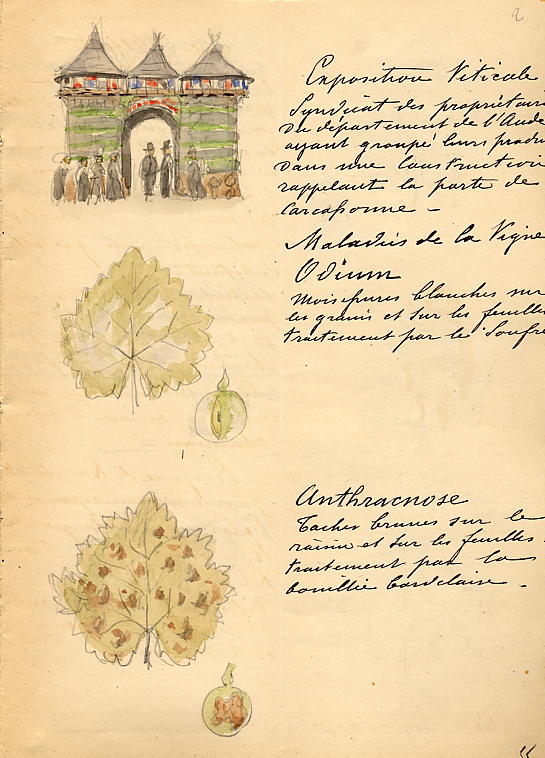 2
Exposition Viticole
Syndicat des propriétair
Du département de l'Aude
ayant groupé leurs produ
Dans une construction
rappelant la porte de
Carcassonne -
Maladies de la Vigne
Odium
Moisissures blanches sur
les grains et sur les feuilles
traitement par le Soufre
Anthracnose
Taches brunes sur le
raisin et sur les feuilles.
traitement par la
bouillie bordelaise -